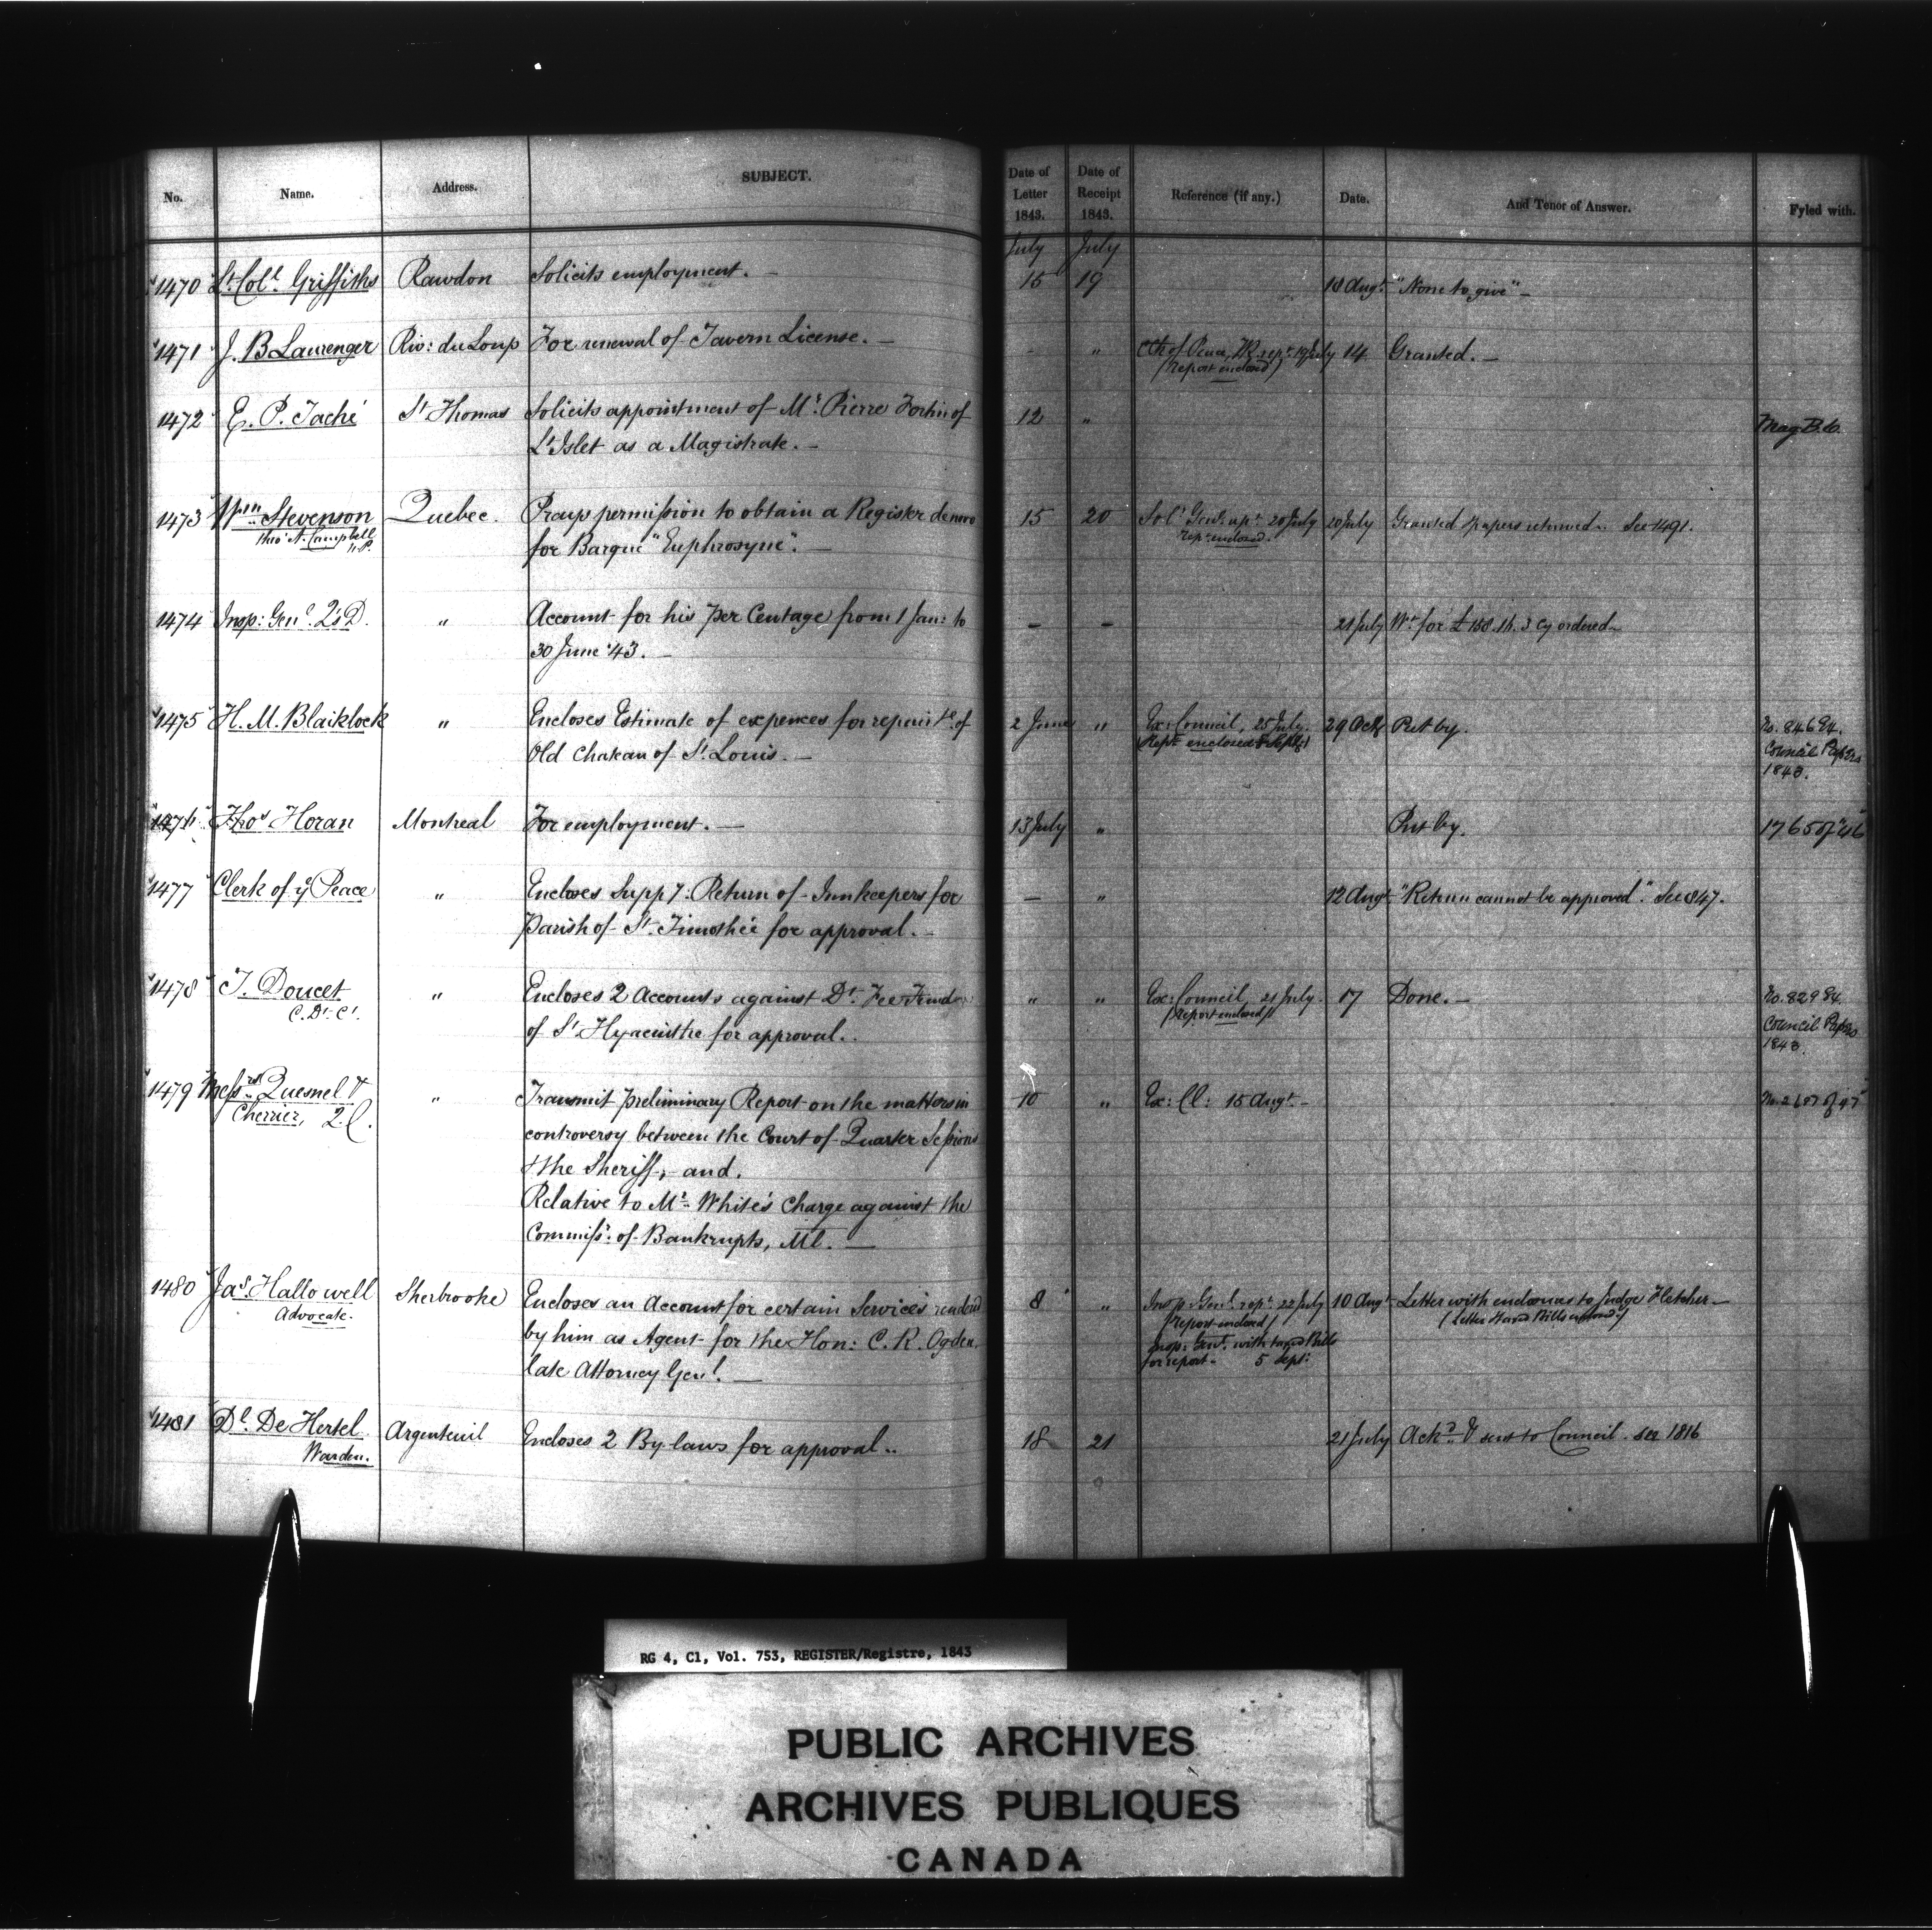 No. Name. Address. SUBJECT. Date of Letter 1843. Date of Receipt 1843. Reference (if any.) Date. And Tenor of Answer. Fyled with.
July July
1470 Lt. Col. Griffiths Rawdon Solicits employment. — 15 19 18 Augt. "None to give" —
1471 J. B. Laurenger Riv: du Loup For renewal of Tavern License. — - " Clk of Peace, 19 July 14 Granted. —
(report enclosed)
1472 E. P. Taché St Thomas Solicits appointment of Mr. Pierre Fortin of 12 "
L'Islet as a Magistrate. — Mag B. C.
1473 Wm. Stevenson Quebec. Prays permission to obtain a Register de novo 15 20 Solr. Genl. rept. 20 July 20 July Granted & papers returned. See 1491.
thro' A. Campbell N.P. for Barque "Euphrosyne". — rept. enclosed.
1474 Insp: Genl. Q's D. " Account for his per Centage from 1 Jan: to — — 21 July Wt. for £158.16.3 Cy ordered —
30 June '43. —
1475 H. M. Blaiklock " Encloses Estimate of expences for repair &c of 2 June " Ex: Council, 25 July. 29 Oct Put by. No. 846 E4.
Old Chateau of St. Louis. — (Rept. enclosed 8 Sept) Council Papers
1843.
1476 Thos Horan Montreal For employment. — 13 July " Put by. 1765 of '46
1477 Clerk of ye Peace " Encloses Suppy: Return of Innkeepers for — " 12 Augt. "Return cannot be approved". See 847.
Parish of St. Timothée for approval. —
1478 T. Doucet " Encloses 2 Accounts against Dt. Fee Fund " " Ex: Council, 21 July. 17 Done. — No. 829 E4.
C. Dt. Ct. of St. Hyacinthe for approval. (Report enclosed) Council Papers
1843.
1479 Messrs. Quesnel & " Transmit preliminary Report on the matters in 10 " Ex: Cl: 15 Augt. —
Cherrier, Q.C. controversy between the Court of Quarter Sessions
& the Sheriff, and.
Relative to Mr. White's Charge against the
Commissr. of Bankrupts, Ml. —
1480 Jas. Hallowell Sherbrooke Encloses an Account for certain Services rendered 8 " Insp: Genl. rept. 22 July 10 Augt. Letter with enclosures to Judge Fletcher —
Advocate. by him as Agent for the Hon: C. R. Ogden, (report enclosed) (Letter & taxed Bills enclosed)
late Attorney Genl. — Insp: Genl. with taxed Bills
for report. 5 Sept:
1481 Dl. De Hertel Argenteuil Encloses 2 By-laws for approval.. 18 21 21 July Ackd. & sent to Council. See 1816
Warden.
RG 4, C1, Vol. 753, REGISTER/Registre, 1843
PUBLIC ARCHIVES
ARCHIVES PUBLIQUES
CANADA